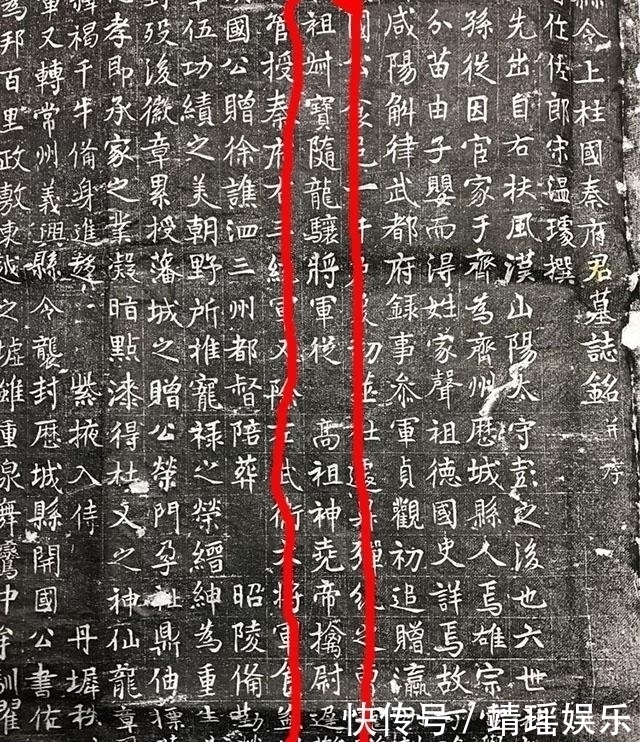 令上柱國秦府君墓誌銘并序
作佐郎宋溫璩撰
先出自右扶風漢山陽太守彭之後也六世
孫從因官家于齊為齊州歷城縣人焉雄宗
分苗由子嬰而得姓家聲祖德國史詳焉故
咸陽斛律武都府錄事參軍貞觀初追贈瀛
國公食邑一千戶
祖叔寶隨龍驤將軍從 高祖神堯帝擒尉遲
管授秦府右三統軍又除左武衛大將軍食益
國公贈徐譙泗三州都督陪葬 昭陵備
卒伍功績之美朝野所推寵祿之榮縉紳為重
歿後徽章累授藩城之贈公榮門孕祉鼎
孝即承家之業凝暗點漆得杜文之神仙龍章
褐千牛備身進 紫掖入侍 丹墀秩
又轉常州義興縣令襲封歷城縣開國公書佐
為邦百里政敷東越之墟雖重泉舞鸞中牟馴翟
快传号／靖瑶娱乐